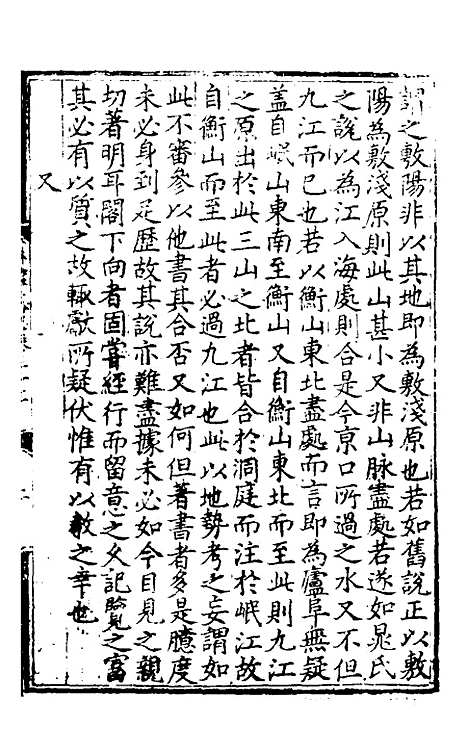 謂之敷陽非以其地即為敷淺原也若如舊說正以敷
陽為敷淺原則此山甚小又非山脉盡處若遂如晁氏
之說以為江入海處則合是今京口所過之水又不但
九江而已也若以衡山東北盡處而言即為廬阜無疑
盖自岷山東南至衡山又自衡山東北而至此則九江
之原出於此三山之北者皆合於洞庭而注於岷江故
自衡山而至此者必過九江也此以地勢考之妄謂如
此不審參以他書其合否又如何但著書者多是臆度
未必身到足歷故其說亦難盡據未必如今目見之親
切著明耳閤下向者固嘗經行而留意之久記覽之富
其必有以質之故輒獻所疑伏惟有以教之幸也
又